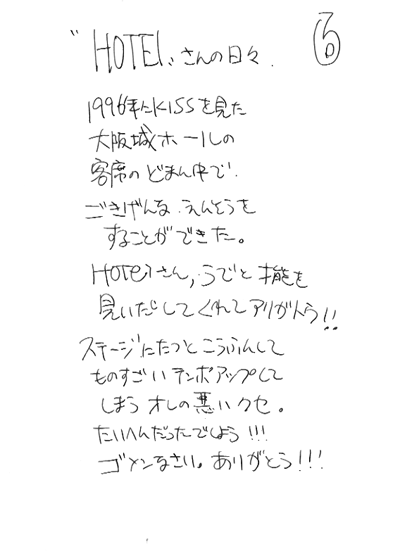 "HOTEI"さんの日々. ⑥
1996年にKISSを見た
大阪城ホールの
客席のどまん中で
ごきげんな えんそうを
することができた。
HOTEIさん,うでと才能を
見いだしてくれてアリがトう!!
ステージにたつとこうふんして
ものすごいテンポアップして
しまう オレの悪いクセ。
たいへんだったでしよう!!!
ゴメンなさい。ありがとう!!!